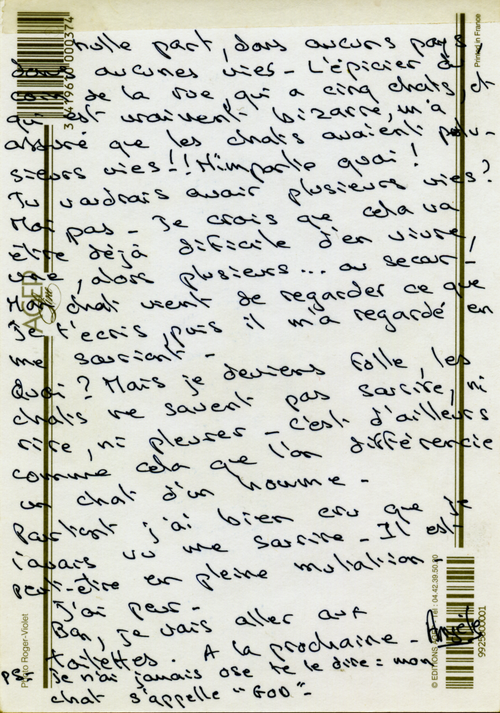 nulle part, dans aucuns pays,
dans aucunes vies - L'épicier du
coin de la rue, qui a cinq chats, et
qui est vraiment bizarre, m'a
assuré que les chats avaient plu-
sieurs vies!! N'importe quoi!
Tu voudrais avoir plusieurs vies?
Moi pas - Je crois que cela va
être déjà difficile d'en vivre,
une, alors plusieurs... au secour -
Mon chat vient de regarder ce que
je t'ecris, puis il m'a regardé en
me souriant -
Quoi? Mais je deviens folle, les
chats ne savent pas sourire, ni
rire, ni pleurer - c'est d'ailleurs
comme cela que l'on différencie
un chat d'un homme -
Pourtant j'ai bien cru que je
l'avais vu me sourire - Il est
peut-être en pleine mutation.
J'ai peur -
Bon, je vais aller aux
toilettes. A la prochaine -
PS: je n'ai jamais osé te le dire: mon
chat s'appelle "GOD" -
3 419670 000374
Printed in France
Photo Roger-Viollet
9925000001